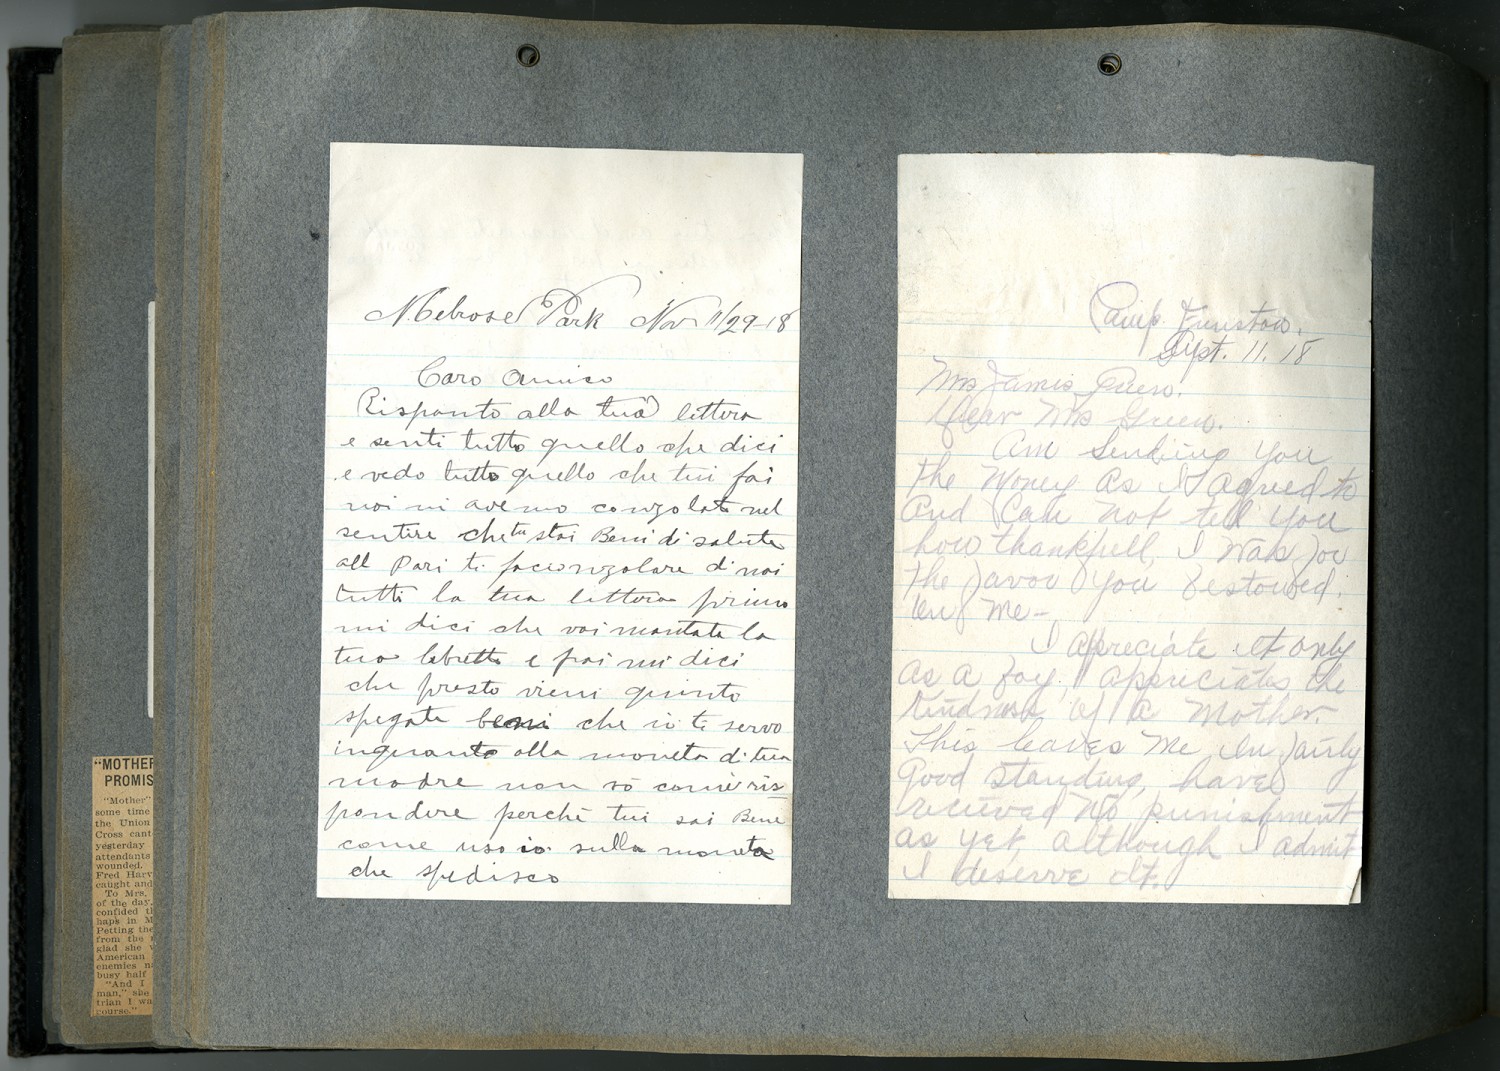 Melrose Park Nov 11/29-18
Caro Amico
Risponto alla tua lettera
e senti tutto quello che dici
e vedo tutto quello che tui fai
noi ni avemo conzolati nel
sentire che tu stai Beni di saluta
all Pari ti facionzolare di noi
tutti la tua lettera primo
mi dici che voi mantata la
tuo lebretto e poi mi dici
che presto vieni quinto
spegate beni che io ti servo
inquanto alla moneta di tua
madre non sò comè ris
pondere perchè tui sai Bene
come uso io sulla moneta
che spedisco
Camp. Funston.
Sept. 11. 18
Mrs Jamis Green.
Dear Mrs Green.
Am Sending You
the Money as I agreed to
And Can not tell You
how thankfull I Was for
the favor You Bestowed.
On Me-
I appreciate it only
as a Boy appreciates the
Kindness of a Mother.
This leaves Me in fairly
good standing, have
recieved No punishment
as yet, although I admit
I deserve it.
"MOTHER
PROMIS
"Mother"
some time
the Union
Cross cant
yesterday
attendants
wounded.
Fred Harv
caught and
To Mrs.
of the day,
confided th
haps in M
Petting the
from the
glad she
American
enemies n
busy half
"And I
man," she
trian I wa
course."